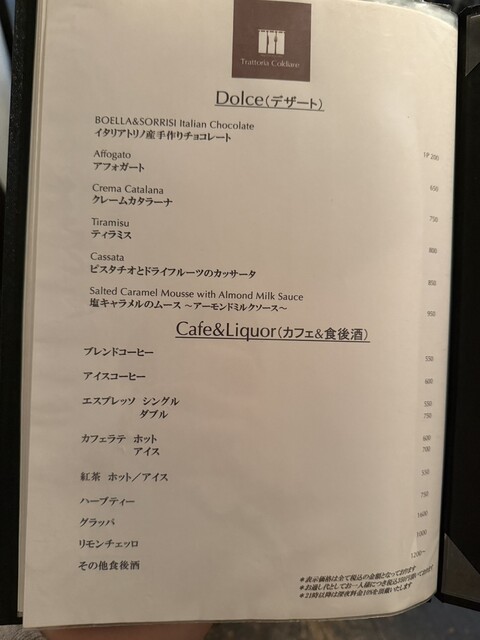 Trattoria Coldiare
Dolce(デザート)
BOELLA&SORRISI Italian Chocolate
イタリアトリノ産手作りチョコレート
1P 200
Affogato
アフォガート
650
Crema Catalana
クレームカタラーナ
750
Tiramisu
ティラミス
800
Cassata
ピスタチオとドライフルーツのカッサータ
850
Salted Caramel Mousse with Almond Milk Sauce
塩キャラメルのムース ～アーモンドミルクソース～
950
Cafe&Liquor(カフェ&食後酒)
ブレンドコーヒー 550
アイスコーヒー 600
エスプレッソ シングル 550
ダブル 750
カフェラテ ホット 600
アイス 700
紅茶 ホット／アイス 550
ハーブティー 750
グラッパ 1600
リモンチェッロ 1000
その他食後酒 1200～
＊表示価格は全て税込の金額となっております
＊お通し代としてお一人様につき税込350円頂いております
＊21時以降は深夜料金10%を頂戴いたします